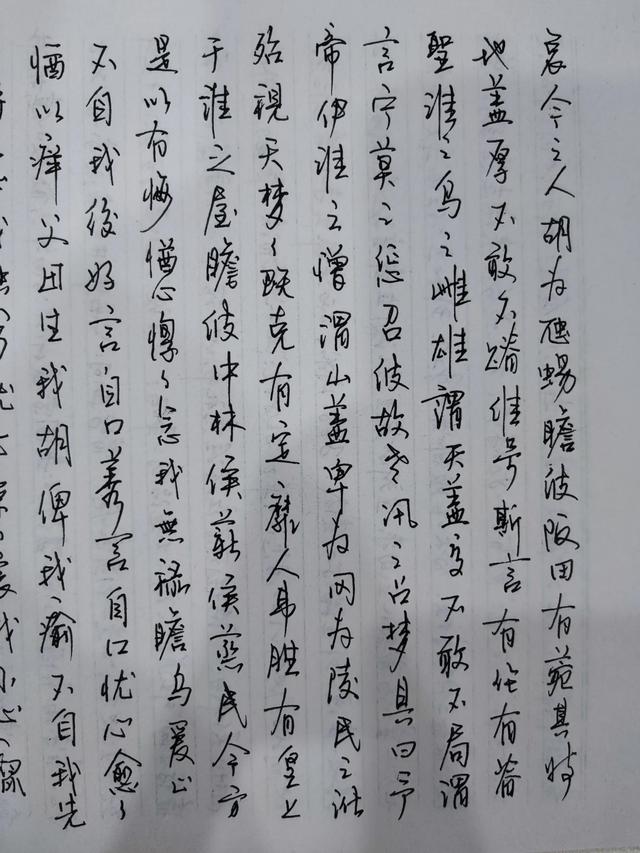 哀我小心癙
以痒父母生我胡俾我瘉不自我先
不自我後好言自口莠言自口忧心愈〻
是以有悔心惸〻念我無祿瞻烏爰止
于誰之屋瞻彼中林侯薪侯蒸民今方
殆視天梦〻既克有定靡人弗胜有皇上
帝伊誰云憎謂山盖卑为冈为陵民之訛
言宁莫之惩召彼故老訊之占梦具曰予
聖誰之烏之雌雄謂天盖高不敢不局謂
地盖厚不敢不蹐维号斯言有伦有脊
哀今之人胡为虺蜴瞻彼阪田有菀其特